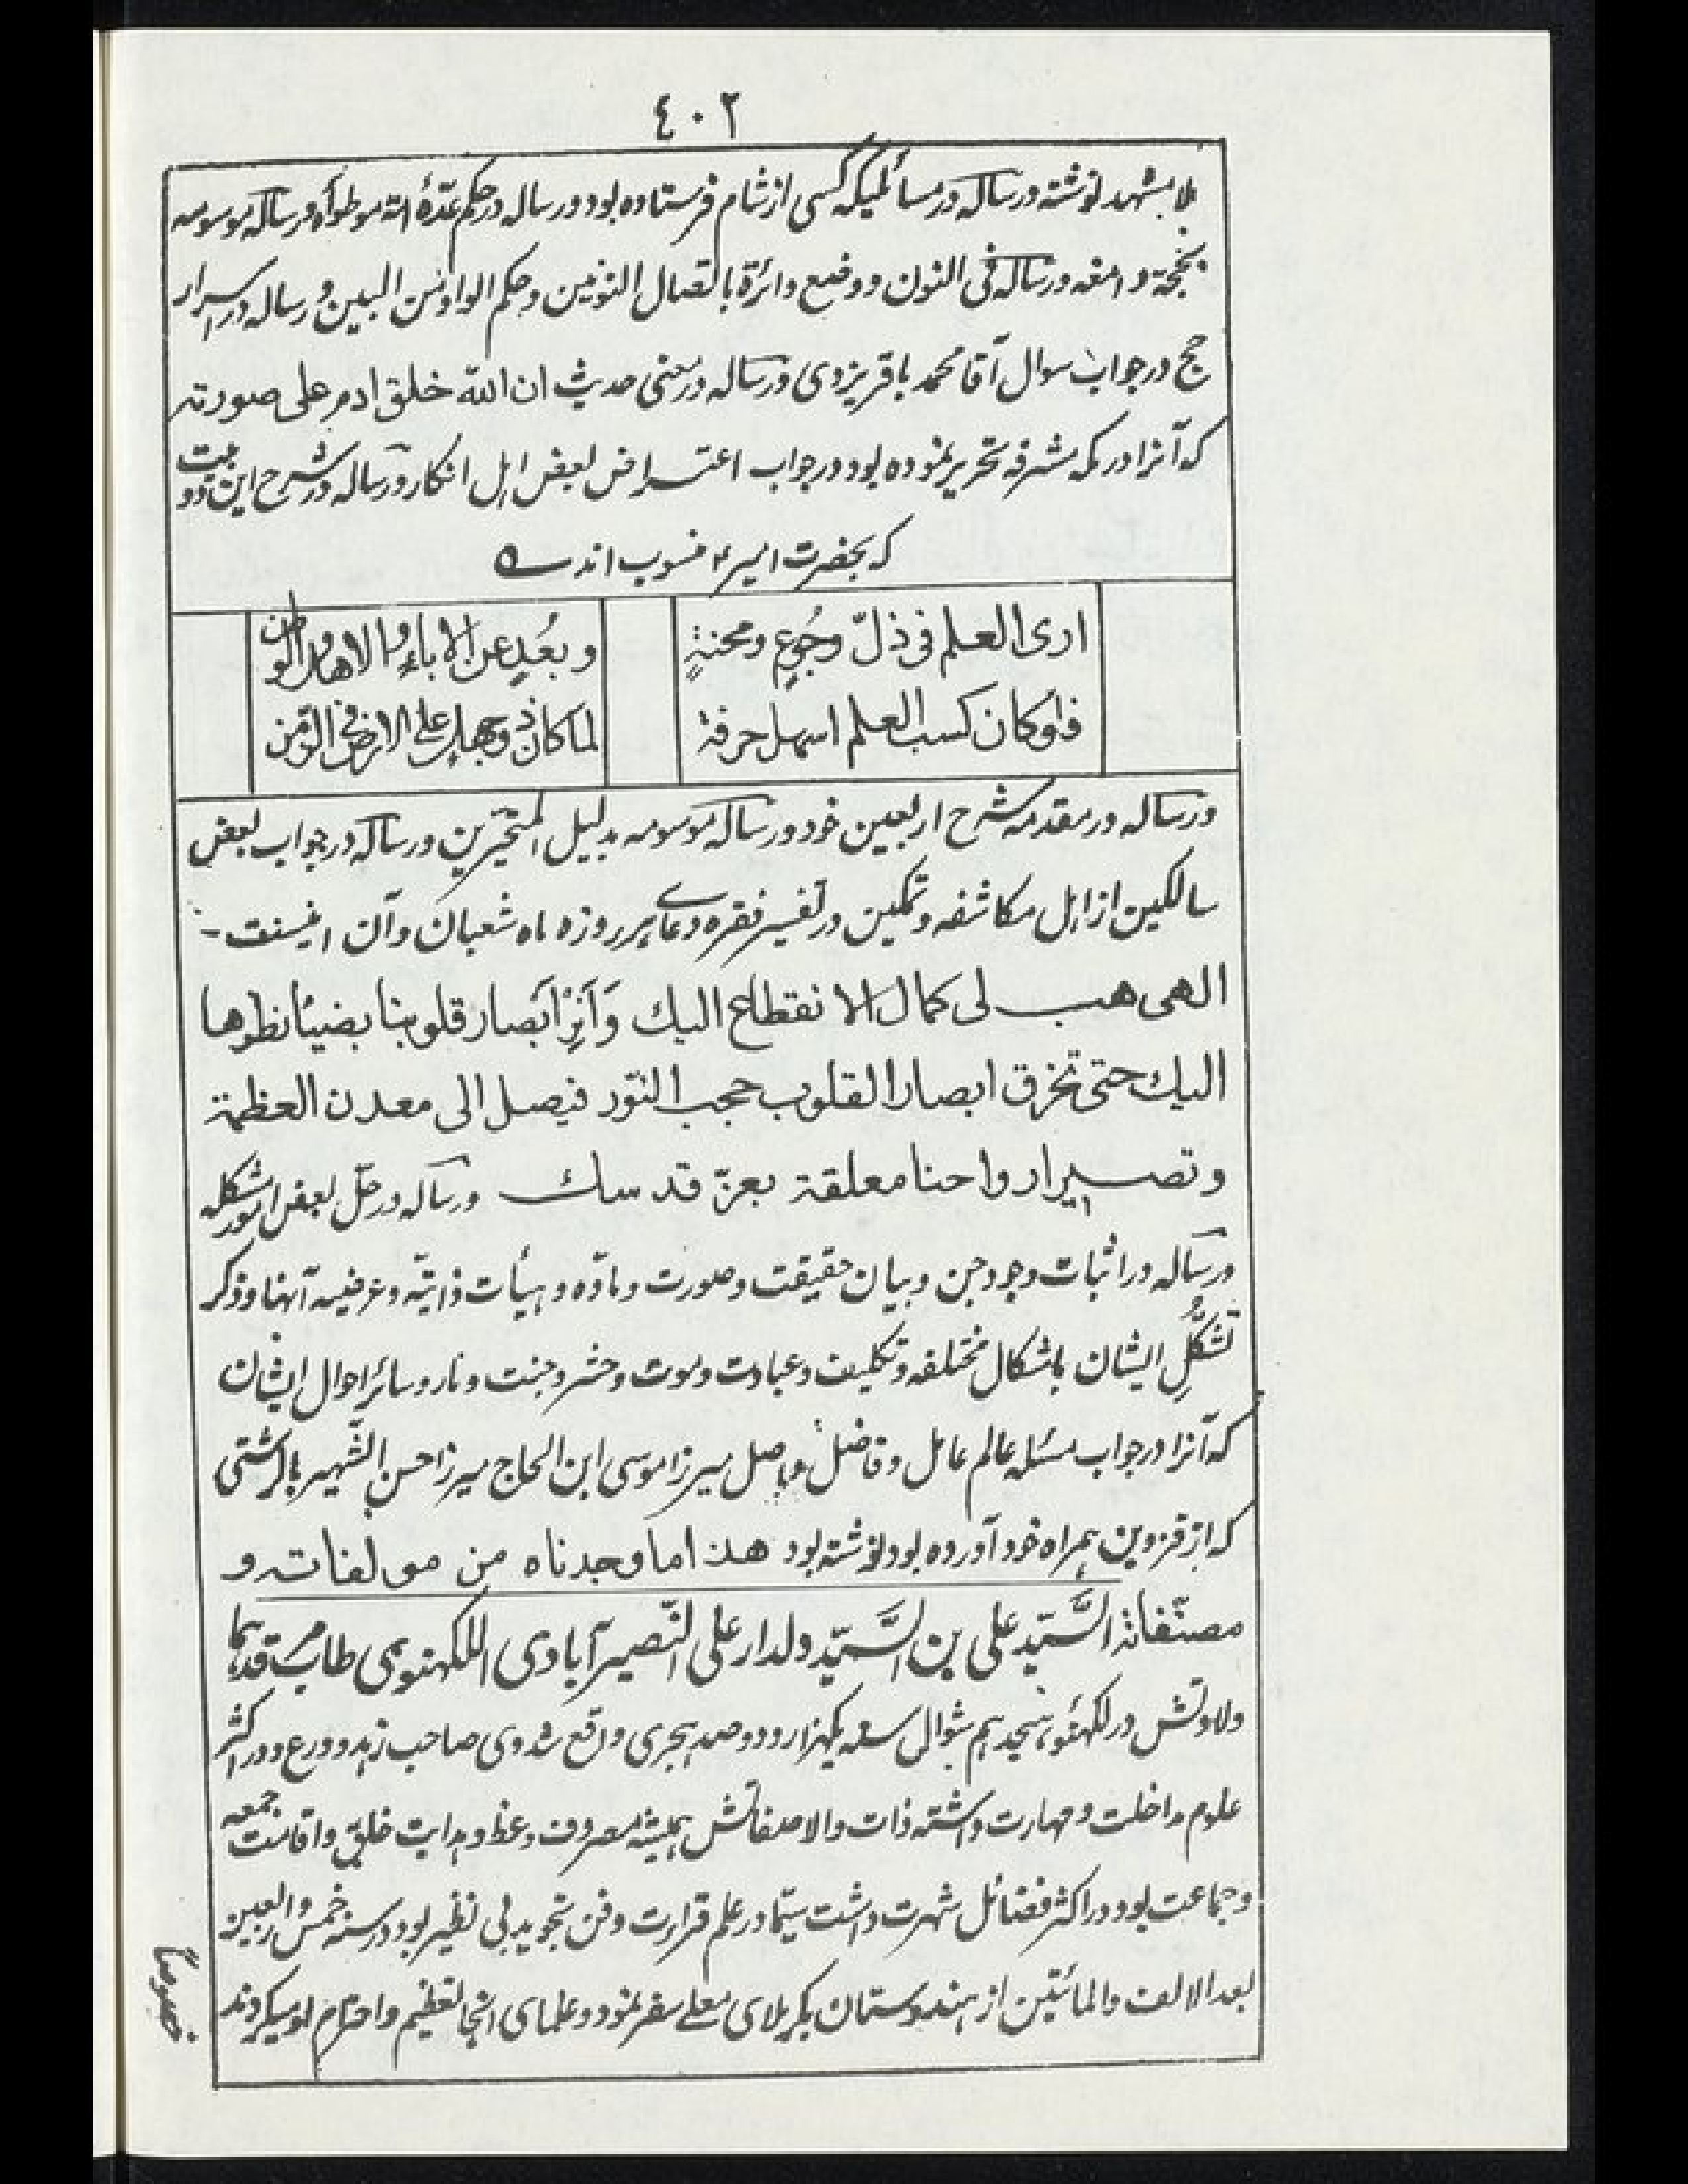 ٤٠٢
بلا بمشهد نوشته ورساله در مسائلیکه کسی از شام فرستاده بود ورساله در حکم عدّهٔ امة موطوأه ورساله موسومه
بحجة دامغه ورساله فی النون ووضع دائرة باتصال النونین وحکم الواو بین البین ورساله در اسرار
حج در جواب سوال آقا محمد باقر یزدی ورساله در معنی حدیث ان الله خلق ادم علی صورته
که آنرا در مکه مشرفه تحریر نموده بود در جواب اعتراض بعض اهل انکار ورساله در شرح این دو بیت
که بحضرت امیر ع منسوب اند
اری العلم فی ذلّ وجُوعٍ ومحنةٍ وبُعدٍ عن الاباء والاهل والوطن
فلو کان کسب العلم اسهل حرفة لما کان ذو جهل علی الارض فی الزمن
ورساله در مقدمه شرح اربعین خود ورساله موسومه بدلیل المتحیّرین ورساله در جواب بعض
سالکین از اهل مکاشفه وتمکین در تفسیر فقره دعاے هر روزه ماه شعبان وآن اینست -
الهی هب لی کمال الانقطاع الیك وَاَنِرْ اَبصار قلوبنا بضیٓاء نظرها
الیك حتی تخرق ابصار القلوب حجب النّور فیصل الی معدن العظمة
وتصیر ارواحنا معلقة بعزّ قدسك ورساله در حلّ بعض امور مشکله
ورساله در اثبات وجود جن وبیان حقیقت وصورت ومادّه وهیأت ذاتیّه وعرضیه آنها وذکر
تشکُّلِ ایشان باشکال مختلفه وتکلیف وعبادت وموت وحشر وجنت ونار وسائر احوال ایشان
که آنرا در جواب مسئله عالم عامل وفاضل واصل میرزا موسی ابن الحاج میرزا حسن الشّهیر بالرشتی
که از قزوین همراه خود آورده بود نوشته بود هذا ما وجدناه من مولفاته و
مصنّفاته السَّیّد علی بن السَّیّد دلدار علی النّصیر آبادی اللکهنوی طاب رمسهما
ولادتش در لکهنؤ هیجدهم شوال سنه یکهزار ودوصد هجری واقع شد وی صاحب زهد وورع ودر اکثر
علوم مداخلت ومهارت داشته ذات والا صفاتش همیشه مصروف وعظ وهدایت خلق واقامت جمعه
وجماعت بود در اکثر فضائل شهرت داشت سیّما در علم قراءت وفن تجوید بی نظیر بود در سنه خمس واربعین
بعد الالف والمائتین از هندوستان بکربلای معلے سفر نمود وعلمای آنجا تعظیم واحترام او میکردند
خصوصاً